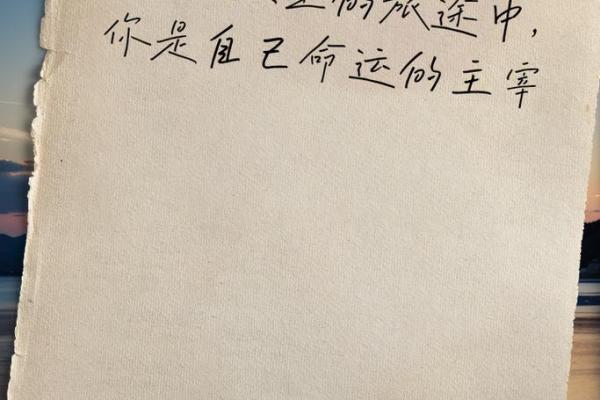 的旅途中,
你是自己命运的主宰